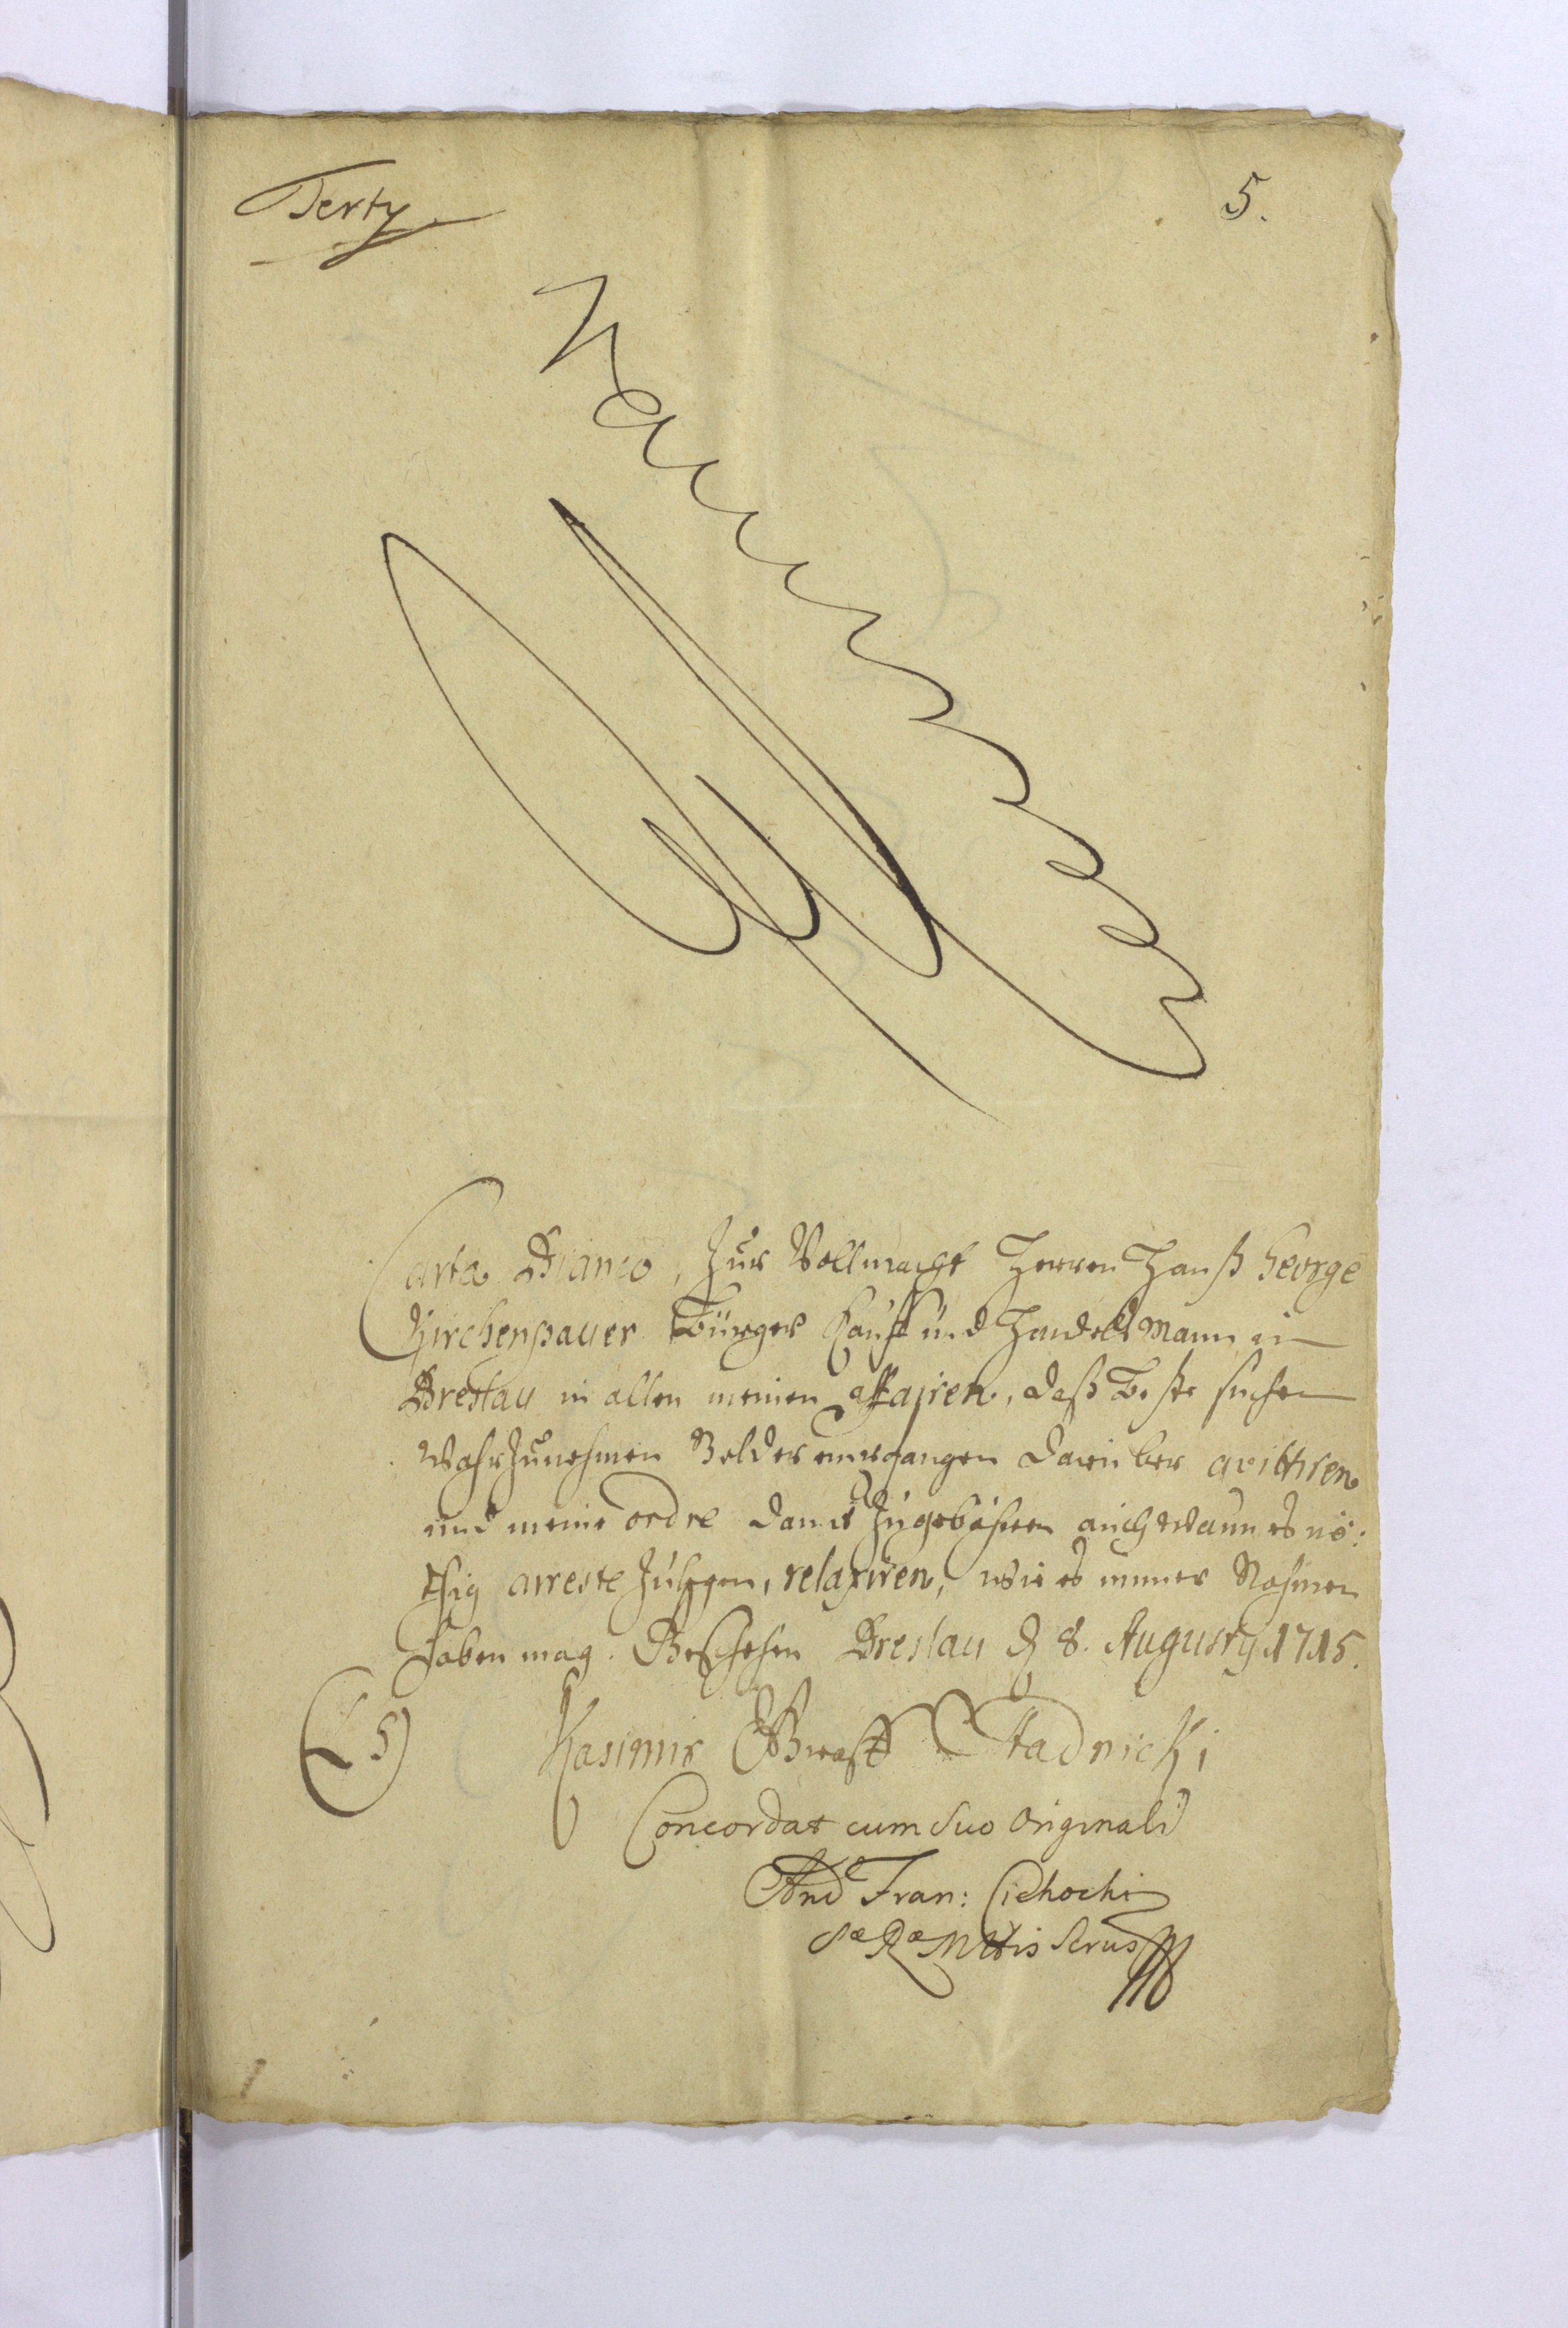 Terty
5.
Carta Bianco, Zur Vollmacht Herren Hanß George
Kirchenpauer Bürger Kauff und Handelß Mann in
Breslau in allen meinen affairen, daß beste suchen
Wahrzunehmen Gelder darüber quittiren
und meine ordre damit auch wann es nö:
thig arreste zulegen, relaxiren, wie es immer Nahmen
haben mag. Geschehen Breslau d 8. Augusty 1715.
(L S)
Kasimir Graff Stadnicki
Concordat cum suo Originali
And Fran: Cichocki
S R Mttis